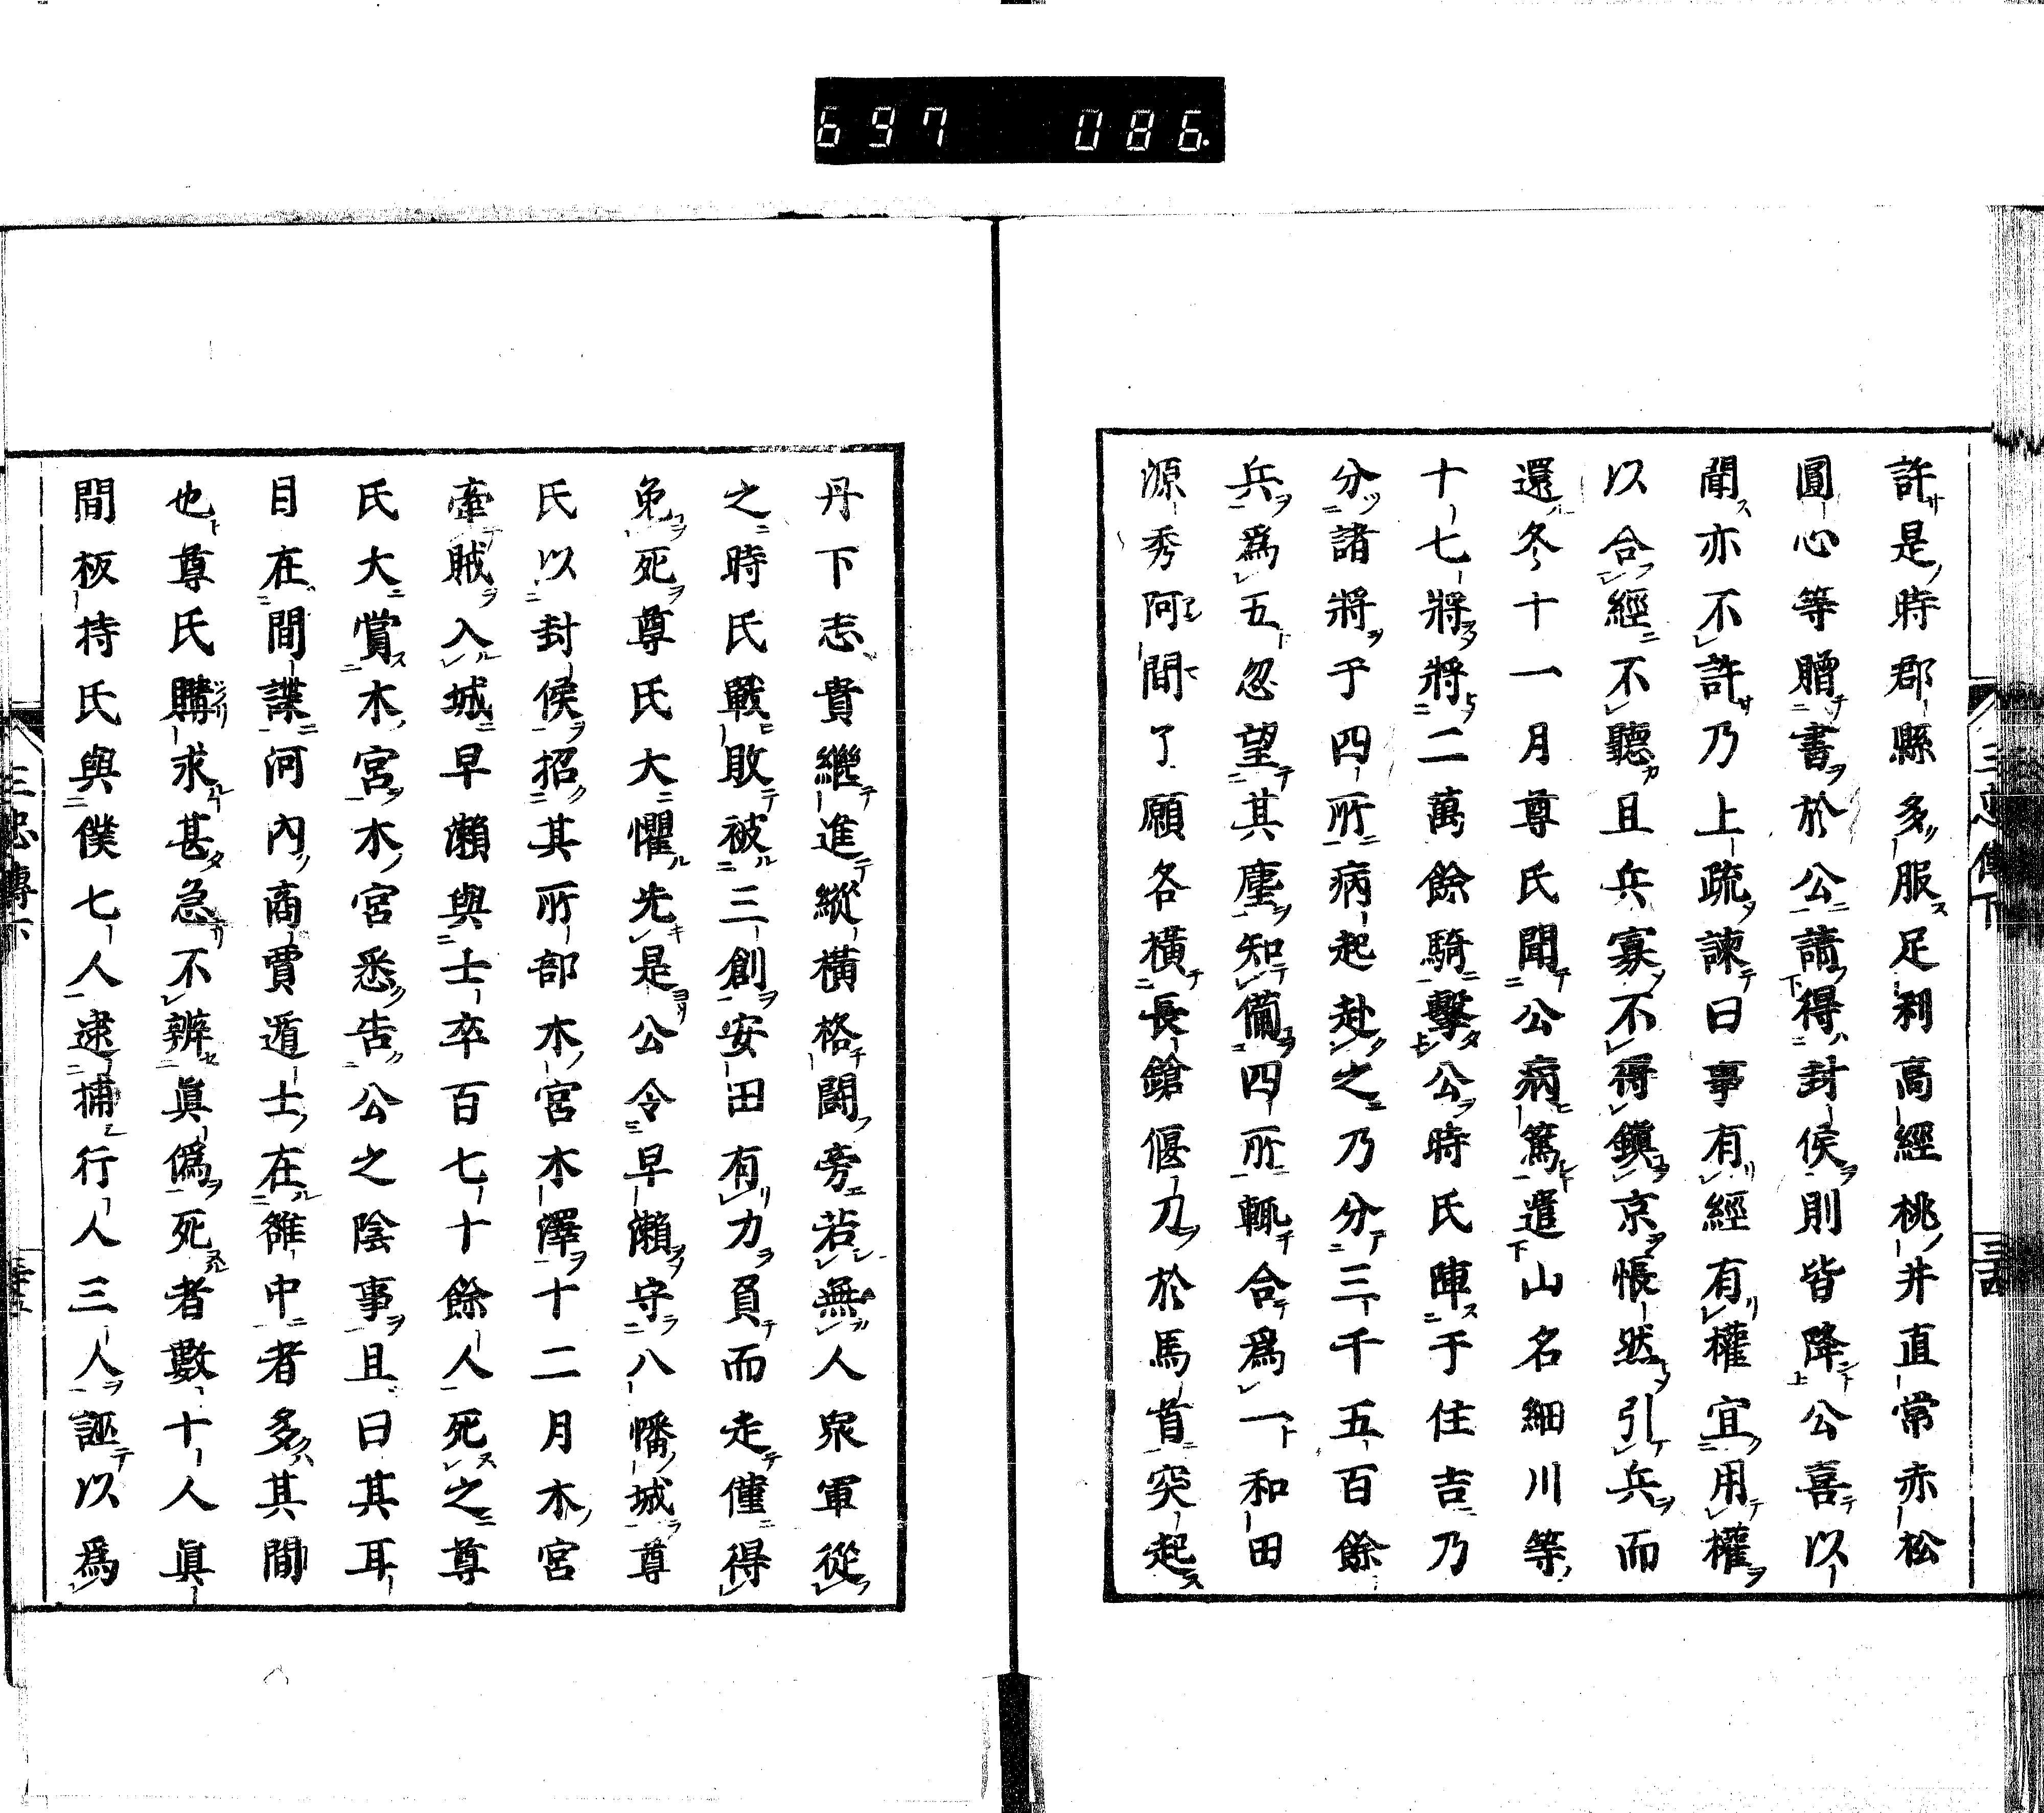 697 086.
三忠傳下
三四
許是時郡縣多服足利高經桃井直常赤松
圓心等贈書於公請得封侯則皆降公喜以
聞亦不許乃上疏諫曰事有經有權宜用權
以合經不聽且兵寡不得鎭京悵然引兵而
還冬十一月尊氏聞公病篤遣山名細川等
十七將將二萬餘騎擊公時氏陣于住吉乃
分諸將于四所病起赴之乃分三千五百餘
兵爲五忽望其塵知備四所輒合爲一和田
源秀阿間了願各橫長鎗偃刀於馬首突起
丹下志貴繼進縱橫格鬪旁若無人衆軍從
之時氏戰敗被三創安田有力負而走僅得
免死尊氏大懼先是公令早瀨守八幡城尊
氏以封侯招其所部木宮木澤十二月木宮
牽賊入城早瀨與士卒百七十餘人死之尊
氏大賞木宮木宮悉告公之陰事且曰其耳
目在間諜河內商賈遁士在雒中者多其間
也尊氏購求甚急不辨眞僞死者數十人眞
間板持氏與僕七人逮捕行人三人誣以爲
三忠傳下